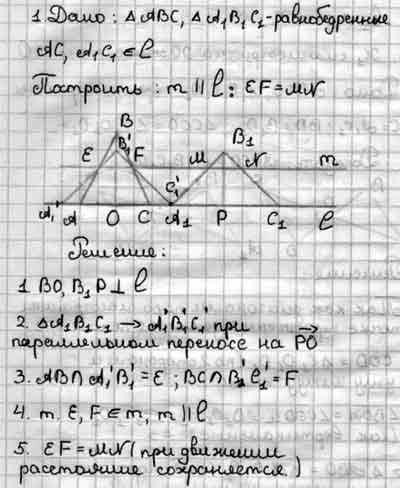 1. Дано: △ABC, △A₁B₁C₁-равнобедренные
AC, A₁C₁ ∈ l
Построить: m || l : EF=MN
B
B₁'
E
F
M
B₁
N
m
C₁'
A₁'
A
O
C
A₁
P
C₁
l
Решение:
1. BO, B₁P ⊥ l
2. △A₁B₁C₁ → A₁'B₁'C₁' при
параллельном переносе на PO
3. AB∩A₁'B₁'=E; BC∩B₁'C₁'=F
4. m. E, F ∈ m, m || l
5. EF=MN (при движении
расстояние сохраняется.)